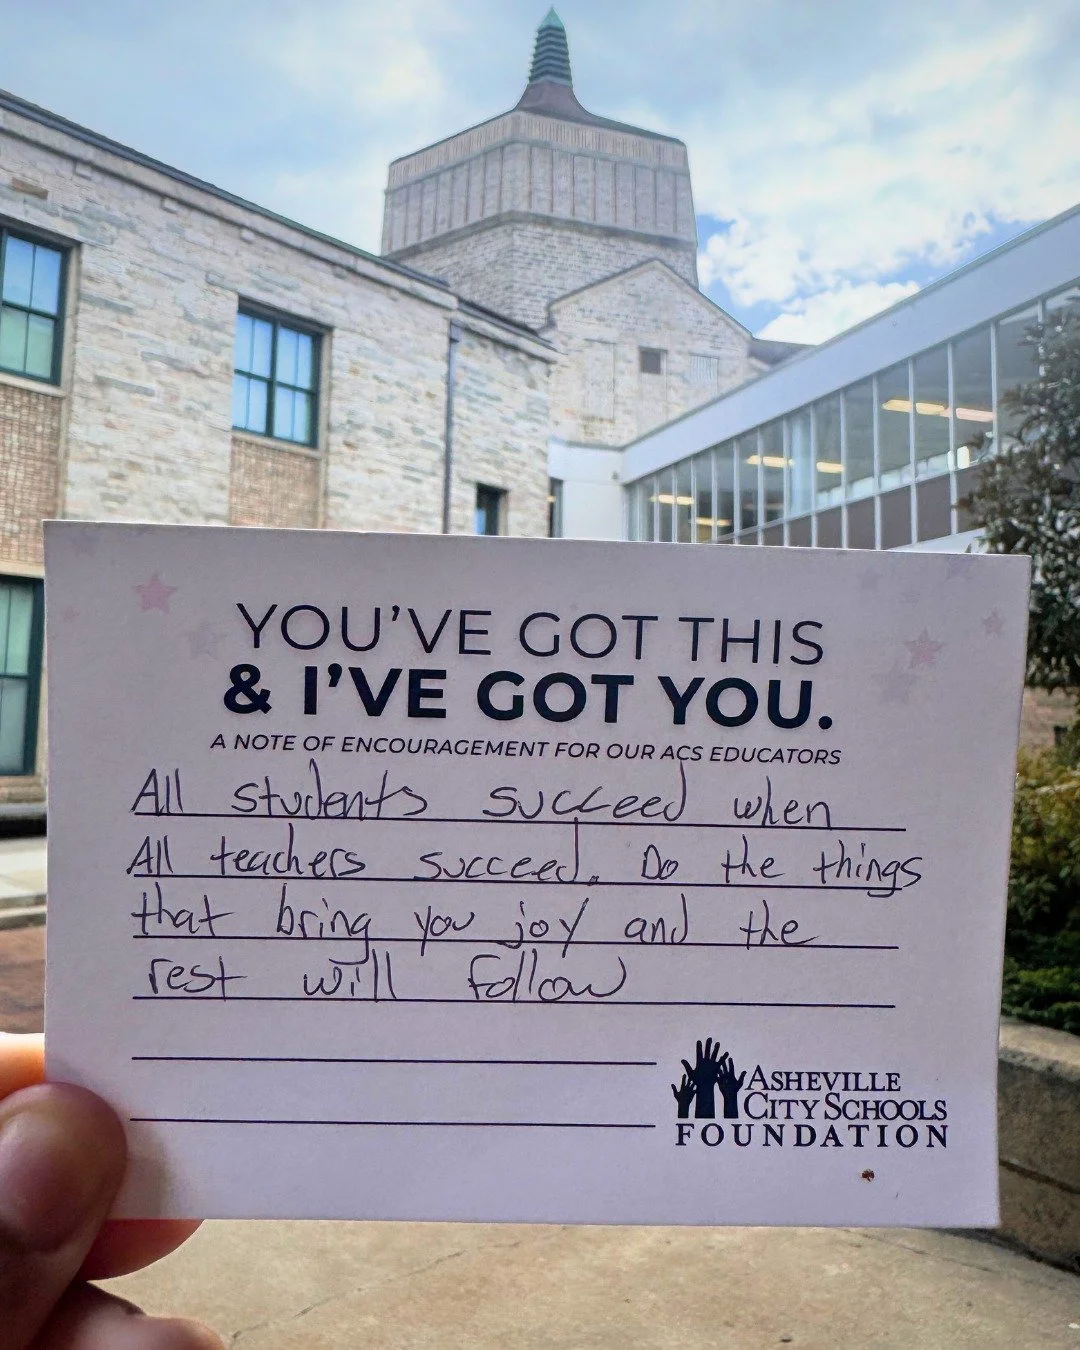 YOU'VE GOT THIS
& I'VE GOT YOU.
A NOTE OF ENCOURAGEMENT FOR OUR ACS EDUCATORS
All students succeed when
All teachers succeed. Do the things
that bring you joy and the
rest will follow
ASHEVILLE
CITY SCHOOLS
FOUNDATION